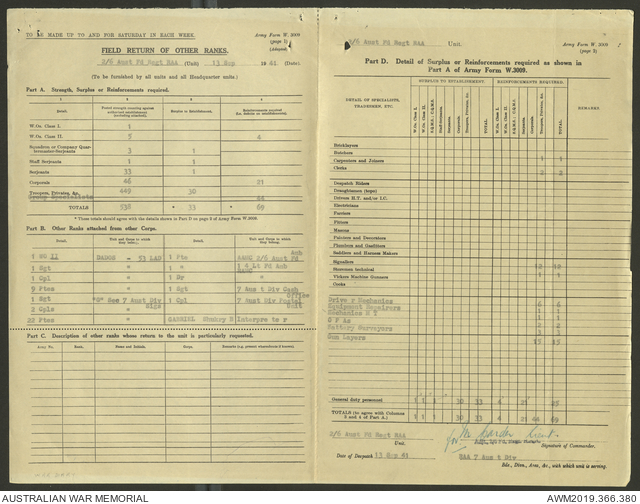 TO BE MADE UP TO AND FOR SATURDAY IN EACH WEEK.
Army Form W. 3009
(page 1)
(Adapted)
FIELD RETURN OF OTHER RANKS.
2/6 Aust Fd Regt RAA (Unit) 13 Sep 1941. (Date).
(To be furnished by all units and all Headquarter units.)
Part A. Strength, Surplus or Reinforcements required.
Detail.
W.Os. Class I. 1
W.Os. Class II. 5 4
Squadron or Company Quartermaster-Serjeants 3 1
Staff Serjeants 1 1
Serjeants 33 1
Corporals 46 21
Troopers, Privates, &c. 449 30
44
TOTALS 538 33 69
* These totals should agree with the details shown in Part D on page 2 of Army Form W.3009.
Part B. Other Ranks attached from other Corps.
Detail. Unit and Corps to which they belong. Detail. Unit and Corps to which they belong.
1 WO II DADOS - 53 LAD 1 Pte AAMC 2/6 Aust Fd Amb
1 Sgt " 1 "
1 Cpl " 1 Dr "
9 Ptes " 1 Sgt 7 Aust Div Cash Office
1 Sgt "G" Sec 7 Aust Div Sigs 1 Cpl 7 Aust Div Postal Unit
2 Cpls "
22 Ptes " GABRIEL Interpreter
Part C. Description of other ranks whose return to the unit is particularly requested.
Army No. Rank. Name and Initials. Corps. Remarks (e.g., present whereabouts if known).
2/6 Aust Fd Regt RAA Unit.
Army Form W. 3009
(page 2)
Part D. Detail of Surplus or Reinforcements required as shown in
Part A of Army Form W.3009.
DETAIL OF SPECIALISTS, TRADESMEN, ETC.
SURPLUS TO ESTABLISHMENT.
REINFORCEMENTS REQUIRED.
REMARKS
W.Os. Class I. W.Os. Class II. Staff-Serjeants. Serjeants. Corporals. Troopers, Privates, &c. TOTAL.
Bricklayers
Butchers
Carpenters and Joiners 1 1
Clerks 2 2
Despatch Riders
Draughtsmen (topo)
Drivers H.T. and/or I.C.
Electricians
Farriers
Fitters
Masons
Painters and Decorators
Plumbers and Gasfitters
Saddlers and Harness Makers
Signallers
Storemen technical 12 12
Vickers Machine Gunners 1 1
Cooks
Driver Mechanics 6 6
Equipment Repairers 1 1
Mechanics M T 1 1
G P As 2 2
Battery Surveyors 3 3
Gun Layers 15 15
General duty personnel 1 1 1 30 33 4 21 25
TOTALS (to agree with Columns 3 and 4 of Part A.) 1 1 1 30 33 4 21 44 69
2/6 Aust Fd Regt RAA
Unit.
for
Signature of Commander.
Date of Despatch 13 Sep 41
RAA 7 Aust Div
Bde., Divn., Area, &c., with which unit is serving.
AUSTRALIAN WAR MEMORIAL
AWM2019.366.380